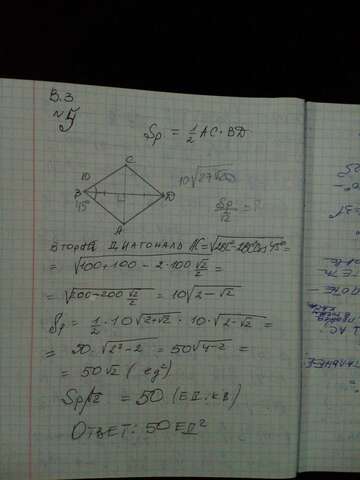 В.3.
№5
Sр = 1/2 AC·BD
C
10
B
D
45°
A
10√(2+√2)
Sр/√2 = ?
Вторая диагональ AC = √(2BC²-2BC²cos45°) =
= √(100+100-2·100 √2/2) =
= √(200-200 √2/2) = 10√(2-√2)
Sр = 1/2·10√(2+√2)·10√(2-√2) =
= 50·√(2²-2) = 50√(4-2) =
= 50√2 ( ед²)
Sр/√2 = 50 (ЕД.КВ)
Ответ: 50 ЕД²